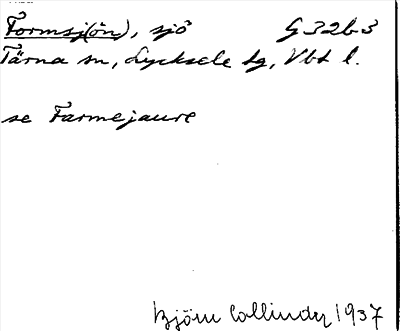 Formsj(ön), sjö G 32b3
Tärna sn, Lycksele tg, Vbt l.
se Farmejaure
Björn Collinder 1937